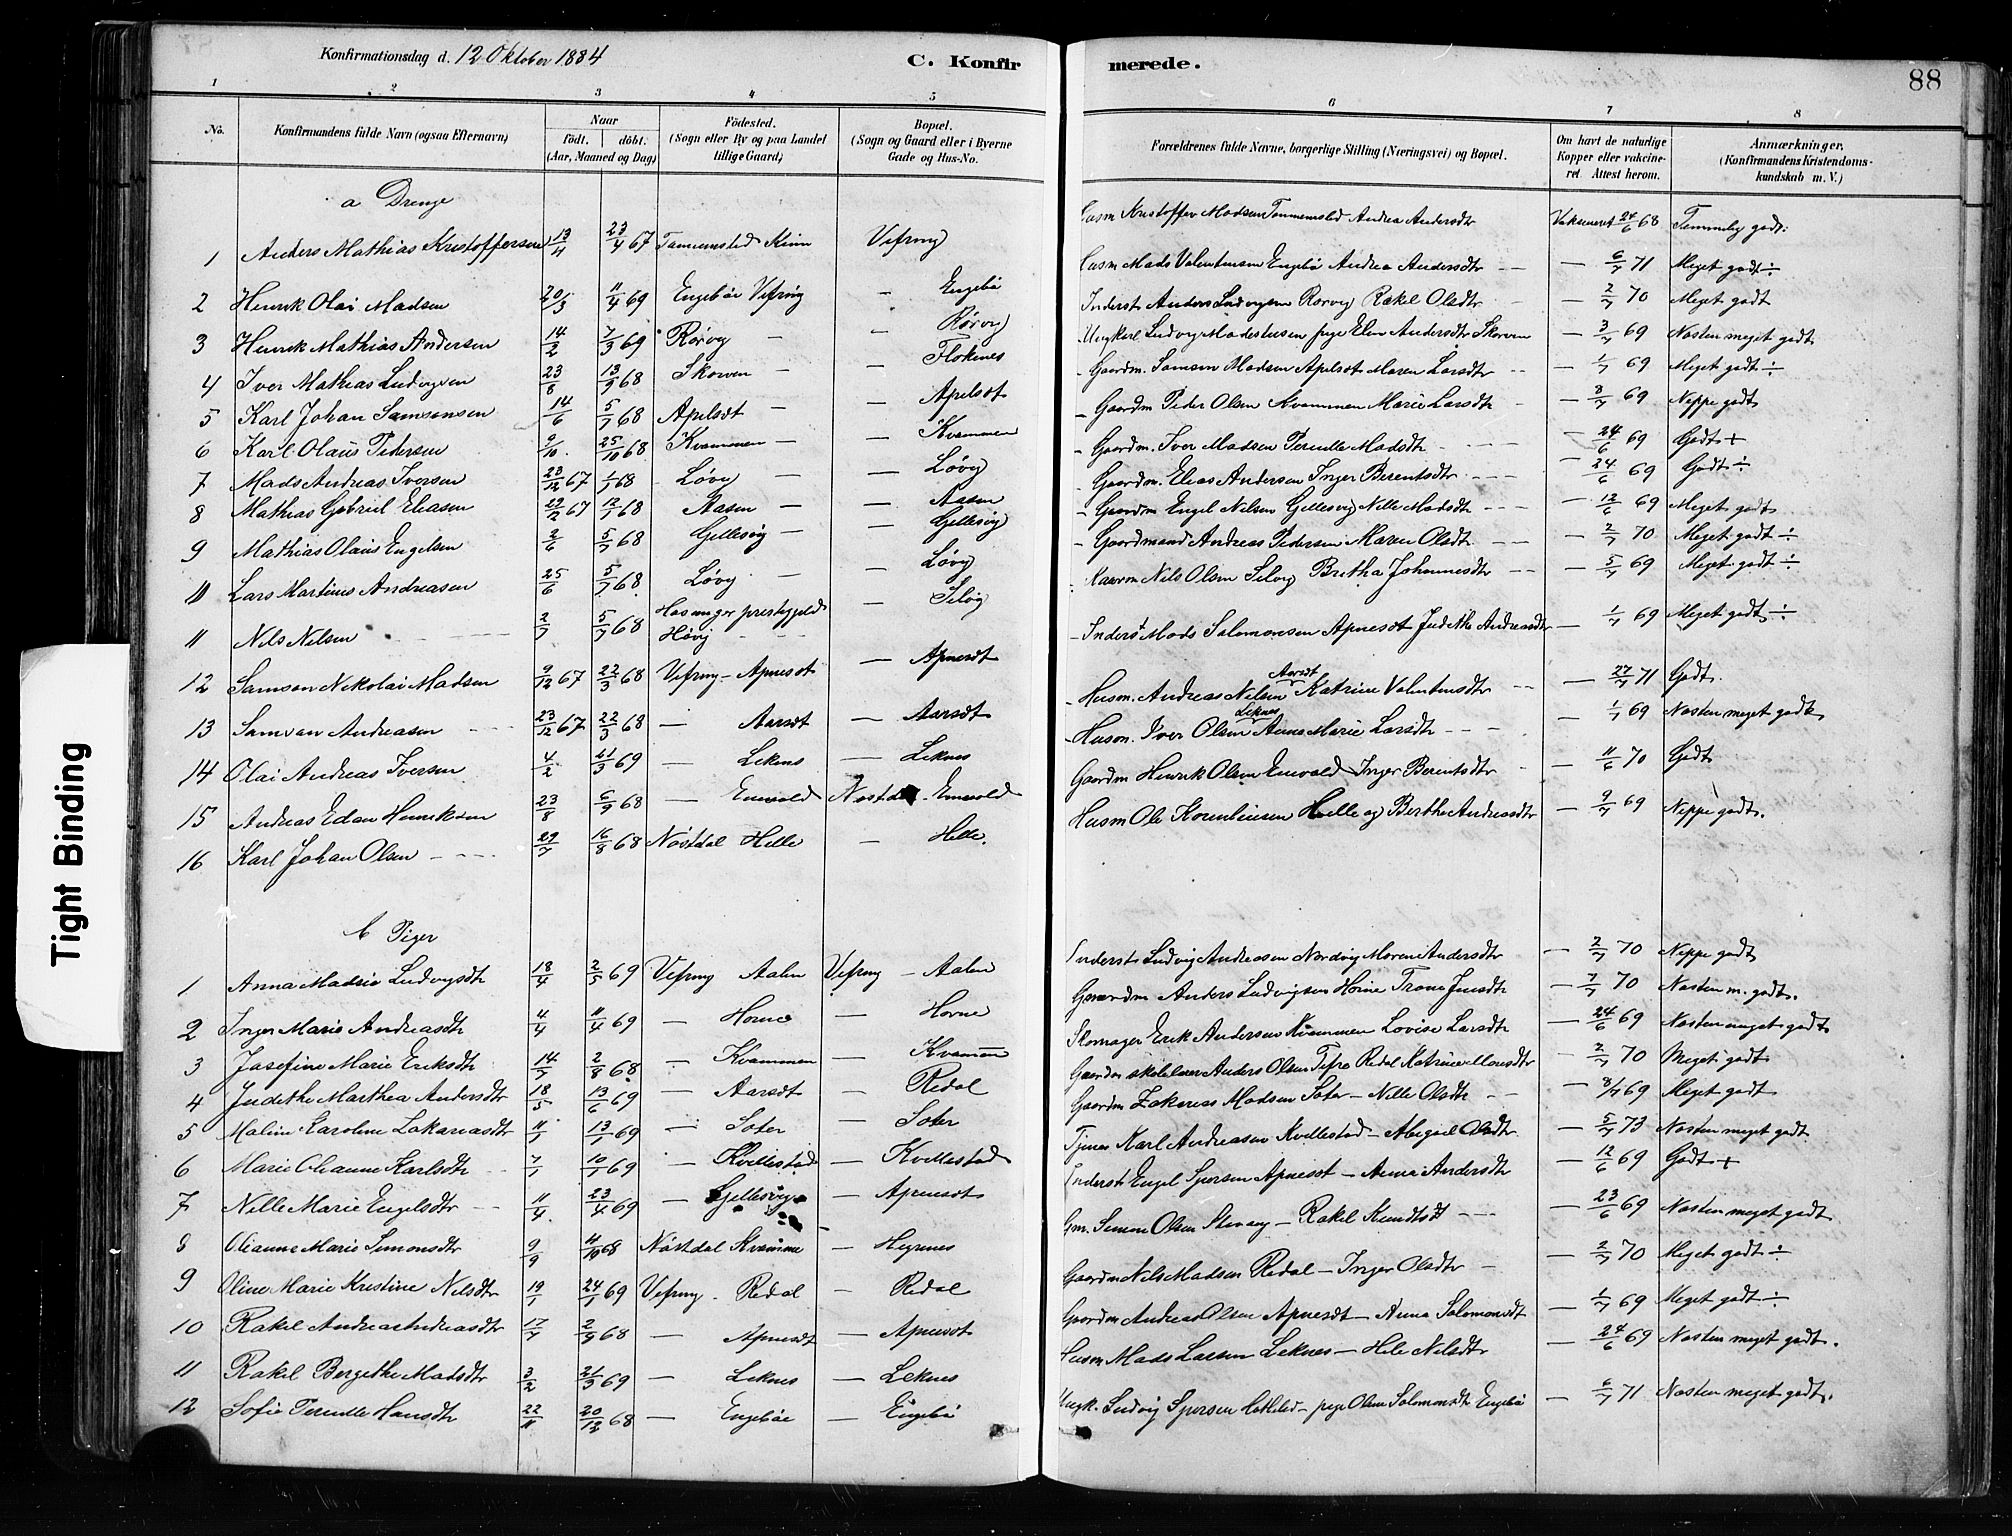 Konfirmationsdag d. 12 Oktober 1884 C. Konfir merede. 88
1 2 3 4 5 6 7 8
No. Konfirmandens fulde Navn (ogsaa Efternavn) Naar födt. döbt. (Aar, Maaned og Dag) Födested. (Sogn eller By og paa Landet tillige Gaard) Bopæl. (Sogn og Gaard eller i Byerne Gade og Hus-No. Forældrenes fulde Navne, borgerlige Stilling (Næringsvei) og Bopæl. Om havt de naturlige Kopper eller vakcineret. Attest herom. Anmærkninger. (Konfirmandens Kristendomskundskab m. V.)
a Drenge
1 Anders Mathias Kristoffersen 13/4 23/4 67 Kinn Vefring Husm Kristoffer Madsen Andrea Andersdtr Vakcineret 24/6 68 Temmelig godt.
2 Henrik Olai Madsen 20/3 11/4 69 Engebøe Vefring — Engebø Husm Mads Valentinsen Engebø Andrea Andersdtr — 6/7 71 Meget godt ÷
3 Henrik Mathias Andersen 14/2 7/3 69 Rørvig — Rørvig Inderst Anders Ludvigsen Rørvig Rakel Olsdtr — 2/7 70 Meget godt
4 Iver Mathias Ludvigsen 23/8 13/9 68 Skorven — Florenes Ungkarl Ludvig Madsen pige Elen Andersdtr Skorven — 3/7 69 Næsten meget godt
5 Karl Johan Samsonsen 14/6 5/7 68 Apelsdt — Apelsdt Gaardm. Samson Madsen Apelsdt Maren Larsdtr — 1/7 69 Meget godt ÷
6 Karl Olaus Pedersen 9/10 25/10 68 Kvammen — Kvammen Gaardm Peder Olsen Kvammen Marie Larsdtr — 8/7 69 Neppe godt
7 Mads Andreas Iversen 23/12 67 1/1 68 Løvig — Løvig Gaardm. Iver Madsen Pernille Madsdtr — 24/6 69 Godt +
8 Mathias Gabriel Eliasen 29/12 67 12/1 68 Aasen — Aasen Gaardm. Elias Andersen Inger Berentsdtr — 24/6 69 Godt ÷
9 Mathias Olaus Engelsen 2/6 5/7 68 Gjellesvig — Gjellesvig Gaardm Engel Nilsen Gjellesvig Nille Madsdtr — 12/6 69 Meget godt
11 Lars Martinus Andreasen 25/6 5/7 68 Løvig — Løvig Gaardmand Andreas Pedersen Maren Olsdtr — 2/7 70 Meget godt ÷
11 Nils Nilsen 2/7 5/7 68 prestegjeld Høvig — Selvig Nils Olsen Selvig Bertha Johannesdtr — 5/7 69 Meget godt ÷
12 Samson Nikolai Madsen 9/12 67 22/3 68 Vefring — Apnesdt — Apnesdt Inderst Mads Salomonsen Apnesdt Judithe Andreasdtr — 1/7 69 Meget godt ÷
13 Samson Andreasen 23/12 67 22/3 68 — Aarsdt — Aarsdt Husm. Andreas Nilsen Aarsdt Katrine Valentinsdtr — 27/7 71 Godt.
14 Olai Andreas Iversen 4/2 21/3 69 — Leknes — Leknes Husm. Iver Olsen Leknes Anne Marie Larsdtr — 1/7 69 Næsten meget godt
15 Andreas Edan Henriksen 23/8 6/9 68 — Emvold Nøstdal — Emvold Gaardm Henrik Olsen Emvold Inger Berentsdtr — 11/6 70 Godt
16 Karl Johan Olsen 29/7 16/8 68 Nøstdal Helle — Helle. Husm Ole Korneliusen Helle og Berthe Andreasdtr — 9/7 69 Neppe godt.
b Piger
1 Anna Madsie Ludvigsdtr 18/4 2/5 69 Vefring Aalen Vefring — Aalen Inderst Ludvig Andreasen Nordvig Maren Andersdtr — 2/7 70 Neppe godt
2 Inger Marie Andreasdtr 4/4 11/4 69 — Horne — Horne Gaardm Anders Ludvigsen Horne — 7/7 70 Næsten m. godt.
3 Josefine Marie Eriksdtr 14/7 2/8 68 — Kvammen — Kvammen Skomager Erik Andersen Kvammen Lovise Larsdtr — 24/6 69 Næsten meget godt
4 Judithe Marthea Andersdtr 18/5 13/6 69 — Aarsdt — Redal Gaardm skolelærer Anders Olsen Redal Katrine Monsdtr — 2/7 70 Meget godt
5 Maline Karoline Zakariasdtr 11/1 13/1 69 — Soter — Soter Gaardm Zakarias Madsen Soter — Nille Olsdtr — 8/7 69 Meget godt
6 Marie Oleanne Karlsdtr 7/1 10/1 69 — Kvellestad — Kvellestad Tjener Karl Andreasen Kvellestad — Abigael Olsdtr — 5/7 73 Næsten meget godt
7 Nille Marie Engelsdtr 11/4 23/4 69 — Gjellesvig — Apnesdt Inderst Engel Apnesdt — Anna Andersdtr — 12/6 69 Godt +
8 Oleanne Marie Simonsdtr 9/9 11/10 68 Nøstdal Kvamme — Hegrenes Gm. Simon Olsen — Rakel Knudtsdt — 23/6 69 Næsten meget godt
9 Oline Marie Kristine Nilsdtr 19/1 24/1 69 Vefring. Redal — Redal Gaardm Nils Madsen Redal — Inger Olsdtr — 2/7 70 Meget godt ÷
10 Rakel Andrea Andreasdtr 17/7 2/9 68 — Apnesdt — Apnesdt Gaardm Andreas Olsen Apnesdt — Anna Salomonsdt — 1/7 69 Meget godt ÷
11 Rakel Bergethe Madsdtr 3/2 21/3 69 — Leknes — Leknes Husm Mads Larsen Leknes — Nilsdtr — 24/6 69 Næsten meget godt.
12 Sofie Pernille Hansdtr 22/11 20/12 68 — Engebøe — Engebø Ungk. Ludvig — pige Oline Salomonsdt Engebø — 6/7 71 Næsten meget godt.
Tight Binding